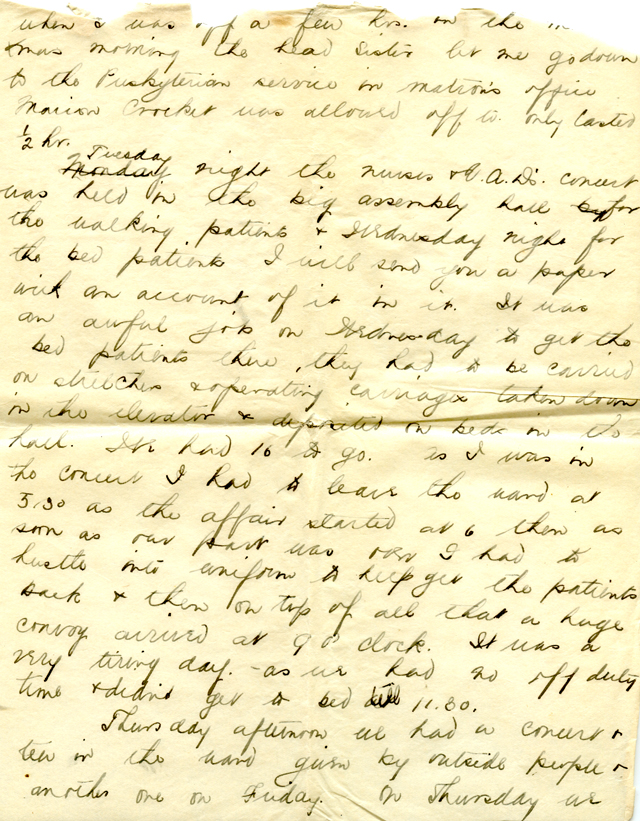 when I was off a few hrs. in the
Xmas morning the head Sister let me go down
to the Presbyterian service in matron's office
Marion Crocket was allowed off to. only lasted
1/2 hr.
Tuesday
Monday night the nurses & V.A.D's. concert
was held in the big assembly hall by for
the walking patients & Wednesday night for
the bed patients I will send you a paper
with an account of it in it. It was
an awful job on Wednesday to get the
bed patients there, they had to be carried
on stretches & operating carriages taken down
in the elevator & deposited on beds in the
hall. We had 16 to go. as I was in
the concert I had to leave the ward at
5.30 as the affair started at 6 then as
soon as our part was over I had to
hustle into uniform to help get the patients
back & then on top of all that a huge
convoy arrived at 9 o'clock. It was a
very tiring day. - as we had no off duty
time & didn't get to bed till 11.30.
Thursday afternoon we had a concert &
tea in the ward given by outside people &
another one on Friday. On Thursday we